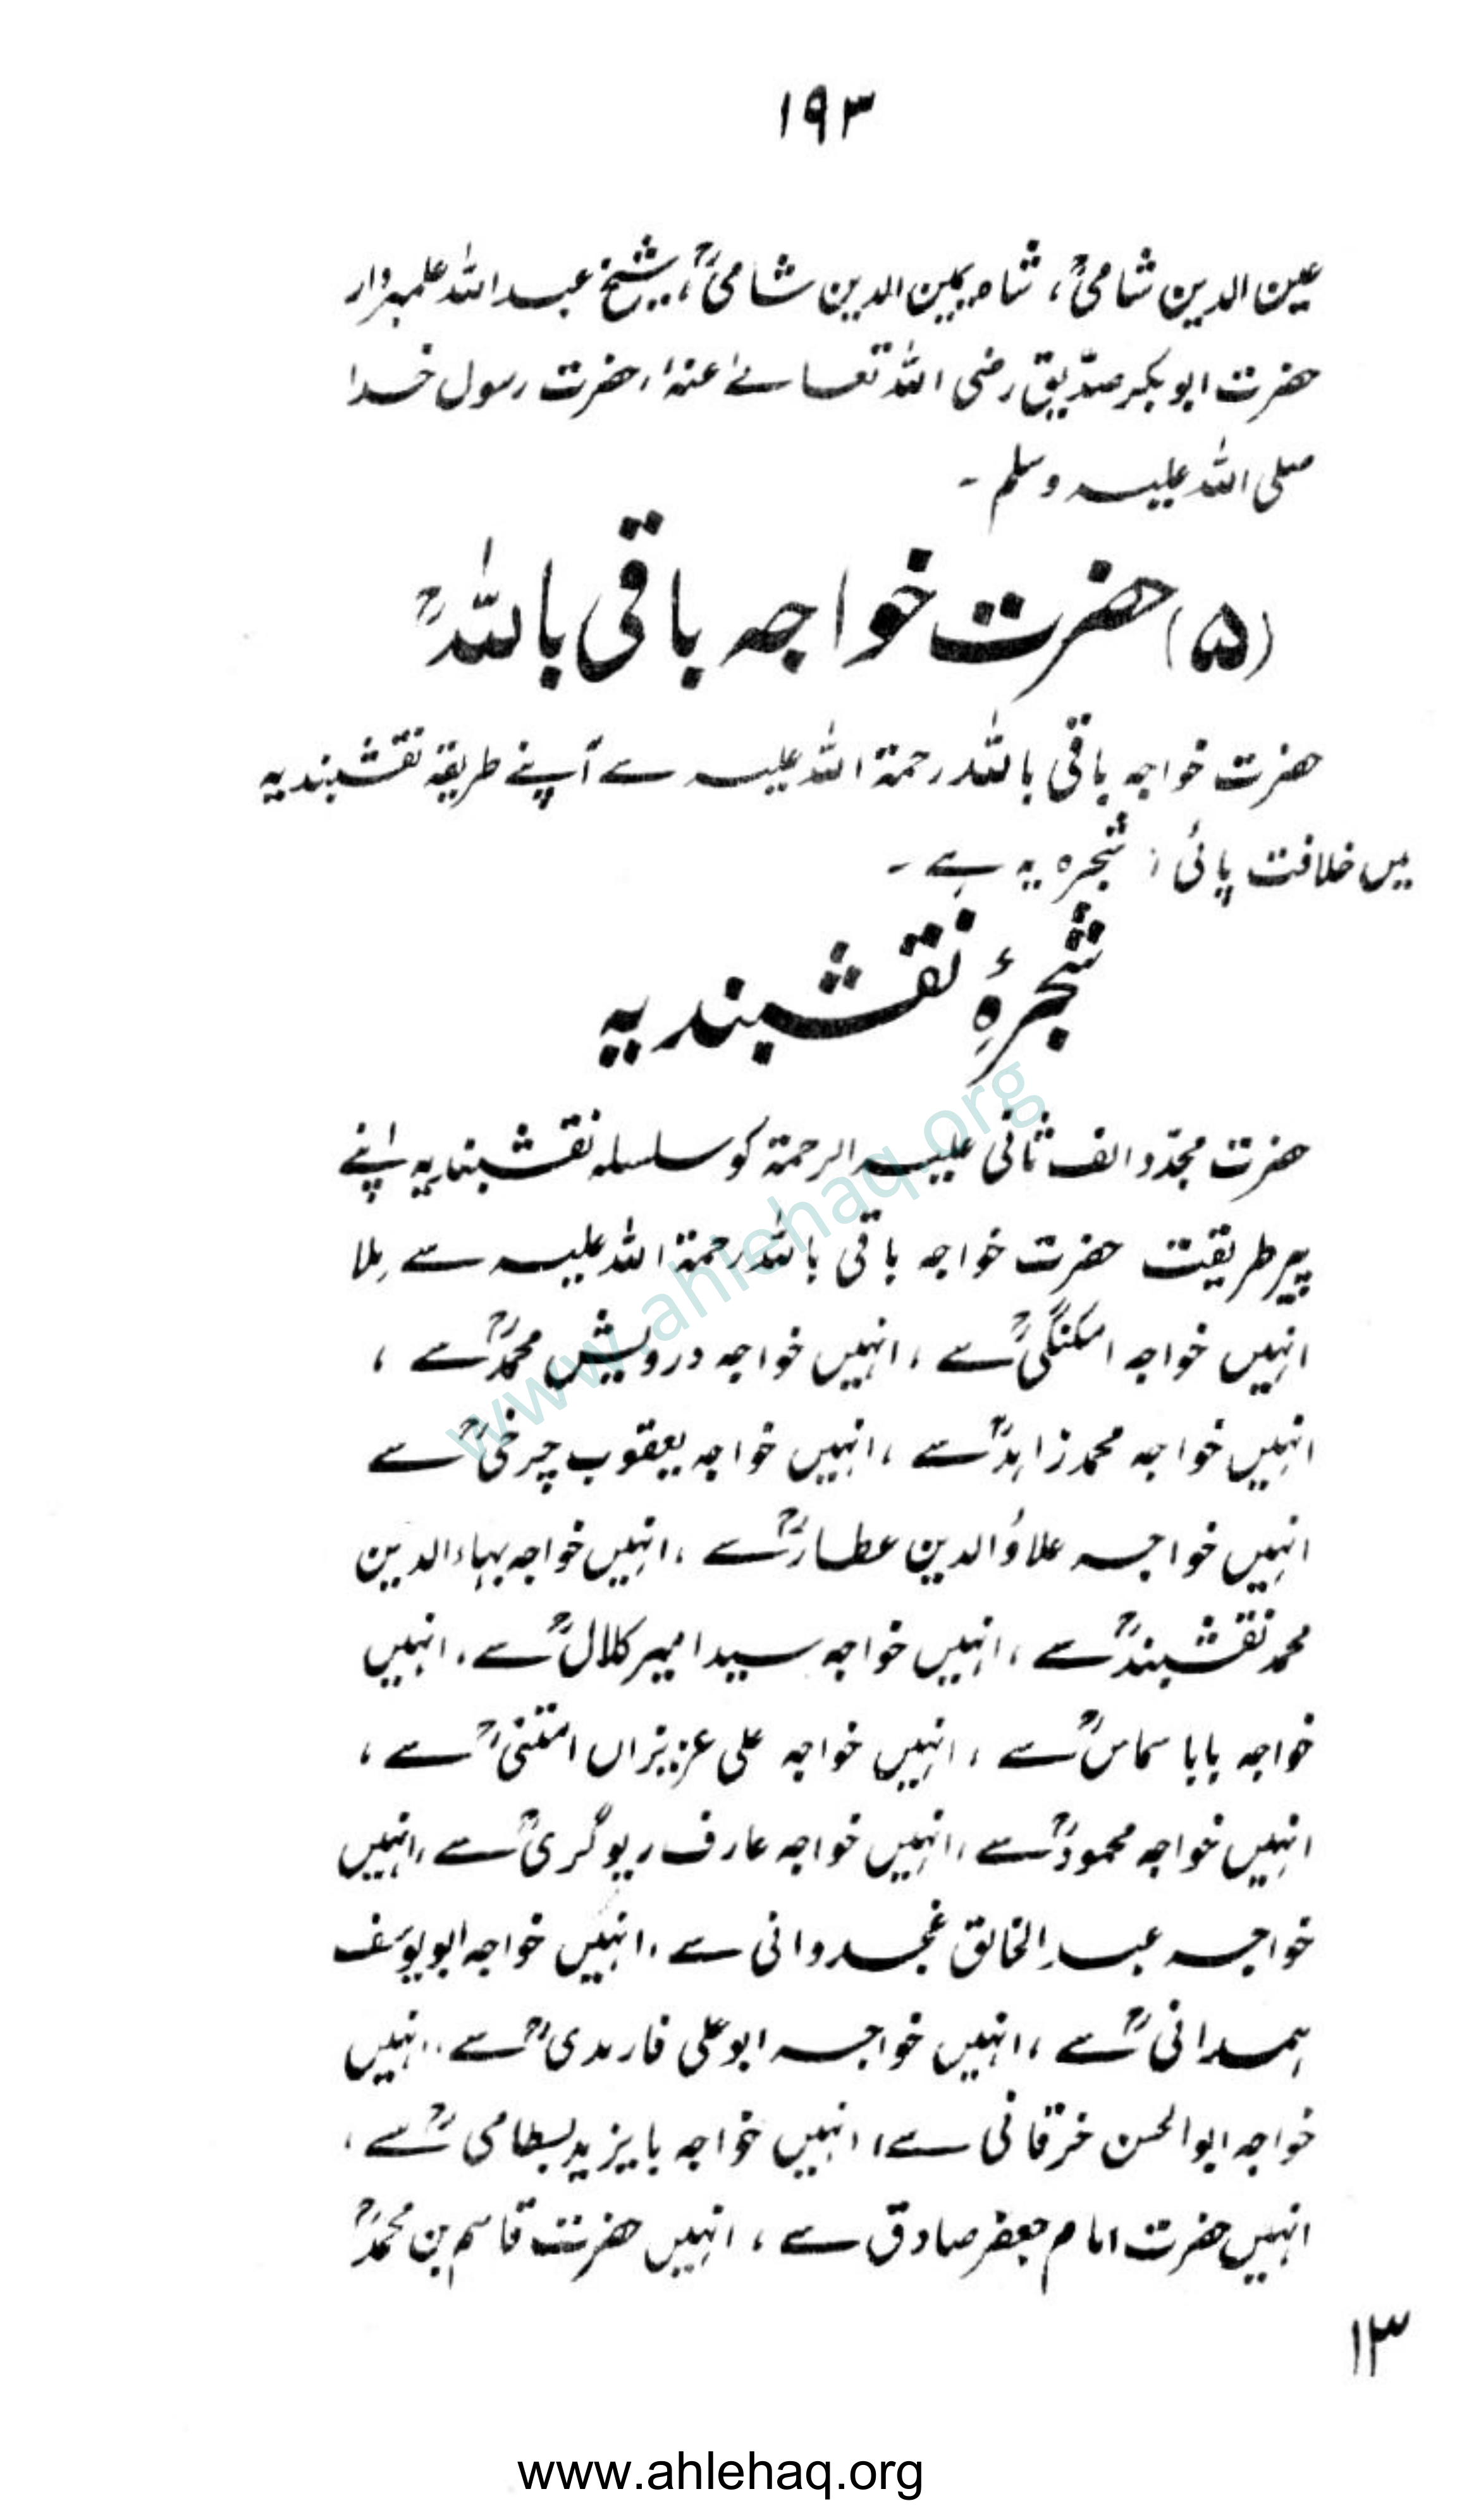 ۱۹۳
عین الدین شامیؒ، شاہ یمین الدین شامیؒ، شیخ عبداللہ علمبردار
حضرت ابوبکر صدّیق رضی اللہ تعالےٰ عنہٗ، حضرت رسول خدا
صلی اللہ علیہ وسلم ۔
(۵) حضرت خواجہ باقی باللہؒ
حضرت خواجہ باقی باللہ رحمۃ اللہ علیہ سے آپنے طریقۂ نقشبندیہ
میں خلافت پائی، شجرہ یہ ہے ۔
شجرۂِ نقشبندیہ
حضرت مجدّد الف ثانی علیہ الرحمۃ کو سلسلہ نقشبندیہ اپنے
پیر طریقت حضرت خواجہ باقی باللہ رحمۃ اللہ علیہ سے مِلا
انہیں خواجہ امکنگیؒ سے ، انہیں خواجہ درویش محمدؒ سے ،
انہیں خواجہ محمد زاہدؒ سے ، انہیں خواجہ یعقوب چرخیؒ سے
انہیں خواجہ علاؤالدین عطارؒ سے ، انہیں خواجہ بہاءالدین
محمد نقشبندؒ سے ، انہیں خواجہ سید امیر کلالؒ سے ، انہیں
خواجہ بابا سماسؒ سے ، انہیں خواجہ علی عزیزاں امتنیؒ سے ،
انہیں خواجہ محمودؒ سے ، انہیں خواجہ عارف ریوگریؒ سے ، انہیں
خواجہ عبدالخالق غجدوانی سے ، انہیں خواجہ ابویوسف
ہمدانیؒ سے ، انہیں خواجہ ابوعلی فارمدیؒ سے ، انہیں
خواجہ ابوالحسن خرقانی سے ، انہیں خواجہ بایزید بسطامیؒ سے ،
انہیں حضرت امام جعفر صادق سے ، انہیں حضرت قاسم بن محمدؒ
۱۳
www.ahlehaq.org
www.ahlehaq.org